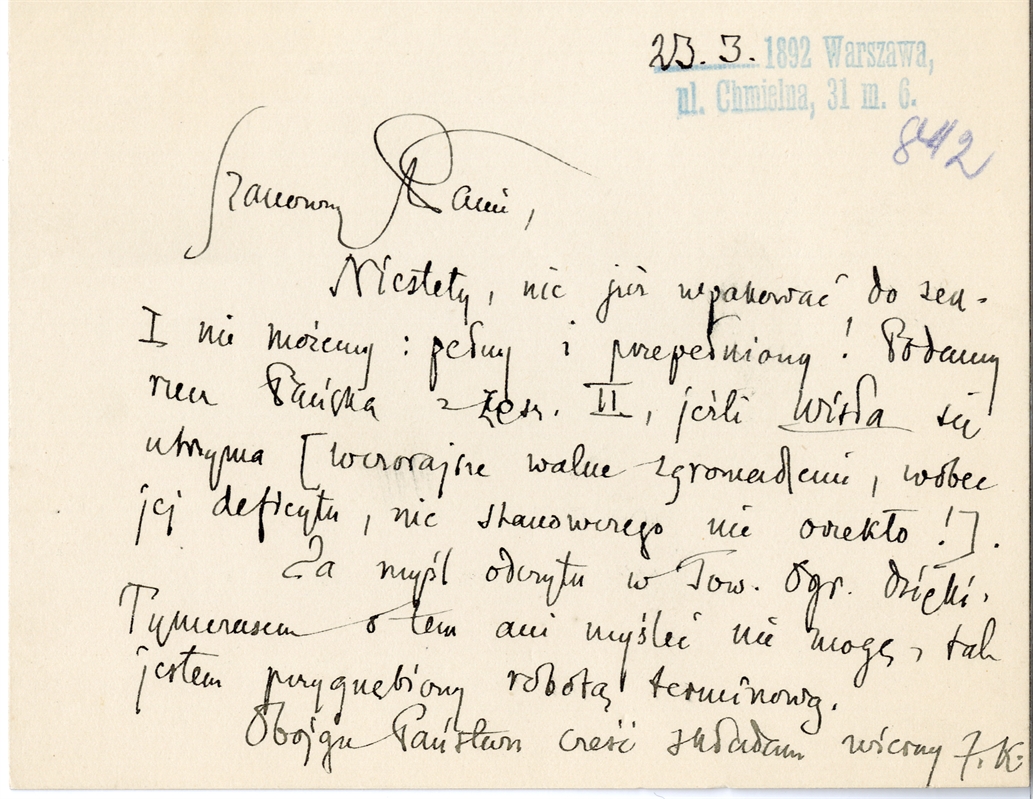 23. 3. 1892 Warszawa,
ul. Chmielna, 31 m. 6.
842
Szanowny Panie,
Niestety, nic już wpakować do zesz.
I nie możemy: pełny i przepełniony! Podamy
rzecz Pańską w zesz. II, jeśli Wisła się
utrzyma [wczorajsze walne zgromadzenie, wobec
jej deficytu, nic stanowczego nie orzekło!].
Za myśl odczytu w Tow. Ogr. dzięki.
Tymczasem o tem ani myśleć nie mogę, tak
jestem przygnębiony robotą terminową.
Obojgu Państwu cześć składam wierny J. K.